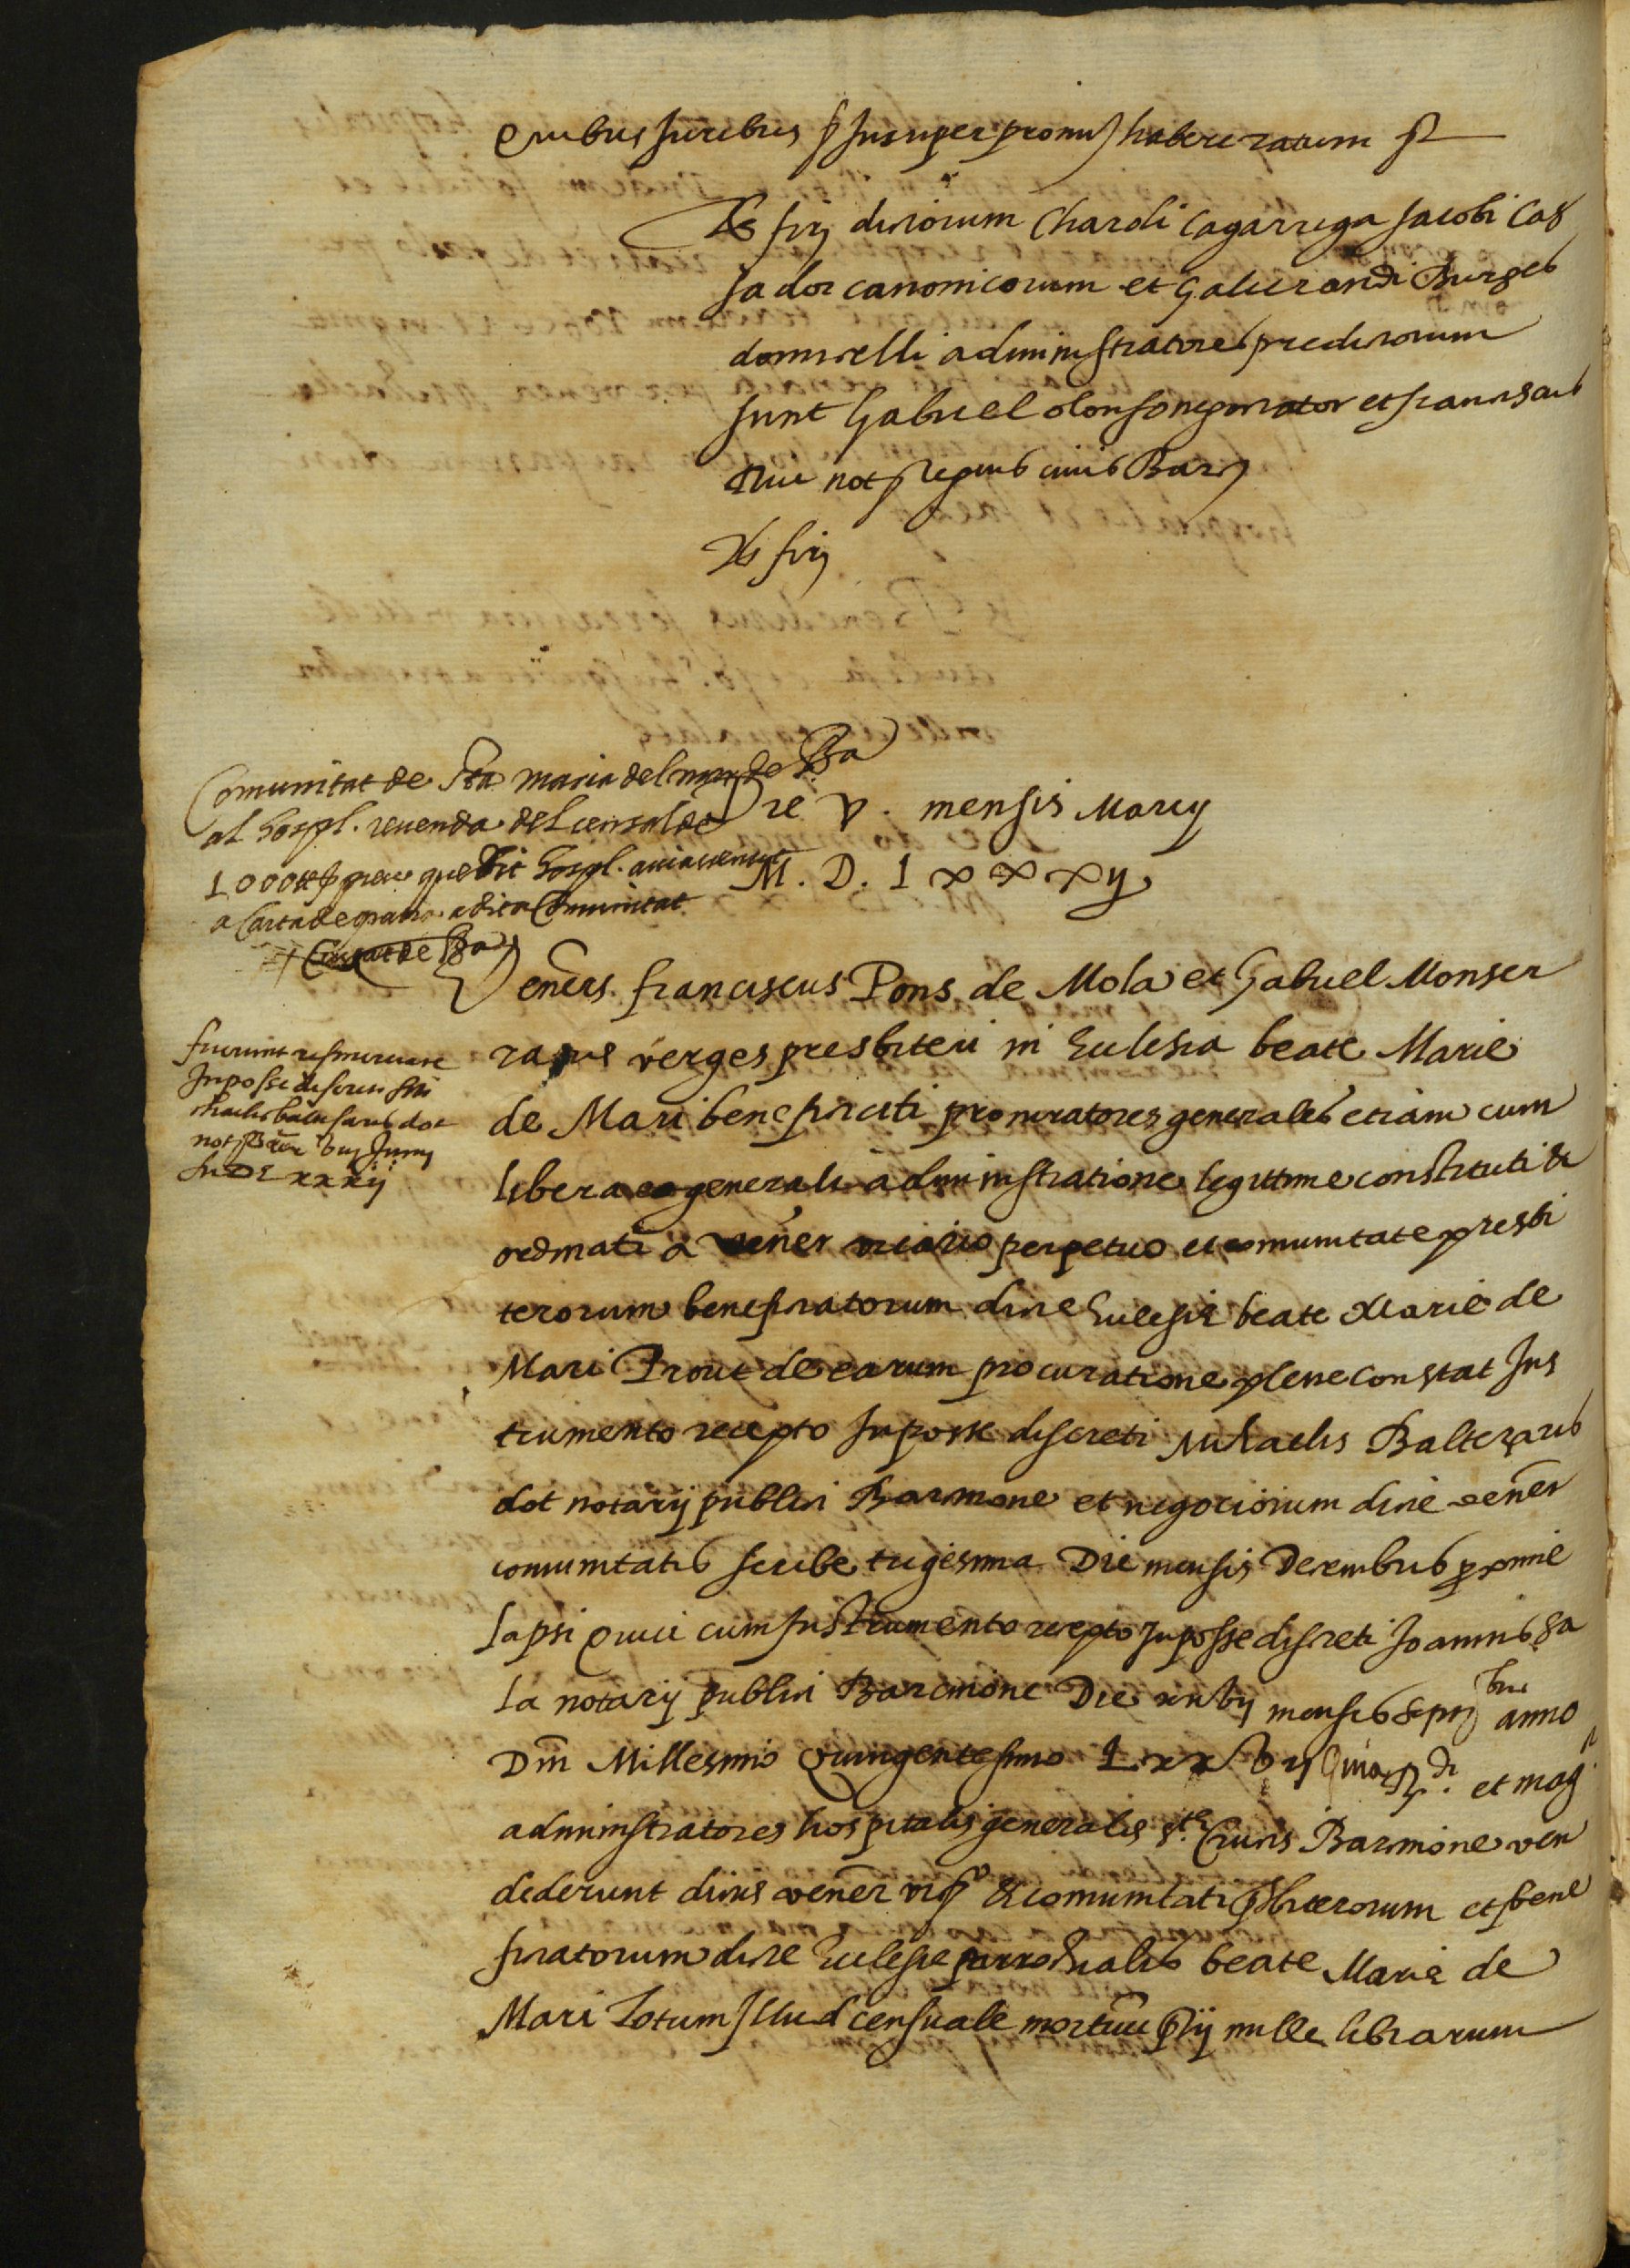 Quibus juribus Insuper promi habere ratum
Ts firm dictorum Chardi Cagarriga Jacobi Cas
sador canonicorum et Galcerandi Burges
domicelli administratores predictorum
sunt Gabriel olonso negoriator et
not regius civis Barn
Ts firm
Comunitat de Sta Maria del mar de Ba
al hospl. revenda del censal de
1000 ll preu que dit hospl. avia venut
a Carta de gratia a dita Comunitat
Ciutat de Ba
Die v. mensis Marcy
M. D. L x x x ij
Veners. franciscus Pons de Mola et Gabriel Monser
ratus verges presbiteri in Eclesia beate Marie
de Mari beneficiati procuratores generales etiam cum
libera et generali administratione legittime constituti et
ordinati a vener vicario perpetuo et comunitate presbi
terorum beneficiatorum dicte Eclesie beate Marie de
Mari Prout de earum procuratione plene constat Ins
trumento recepto In posse discreti Michaelis Baltezaris
dot notarij publici Barcinone et negociorum dicte vener
comunitatis scribe trigesima Die mensis Decembris proxime
lapsi Quia cum Instrumento recepto In posse discreti Joannis sa
la notarij publici Barcinone Die xxvij mensis septembris anno
Dni Millesimo Quingentesimo L x x v ij et mag
administratores hospitalis generalis ste Crucis Barcinone ven
diderunt dictis vener vicario et comunitati pbiterorum et bene
ficiatorum dicte Eclesie parrochialis beate Marie de
Mari Totum Illud censuale mortuum pcij mille librarum
fuerunt
In posse discreti
Mihaelis baltesaris dot
not Barcne vij Juny
M D L xxx ij